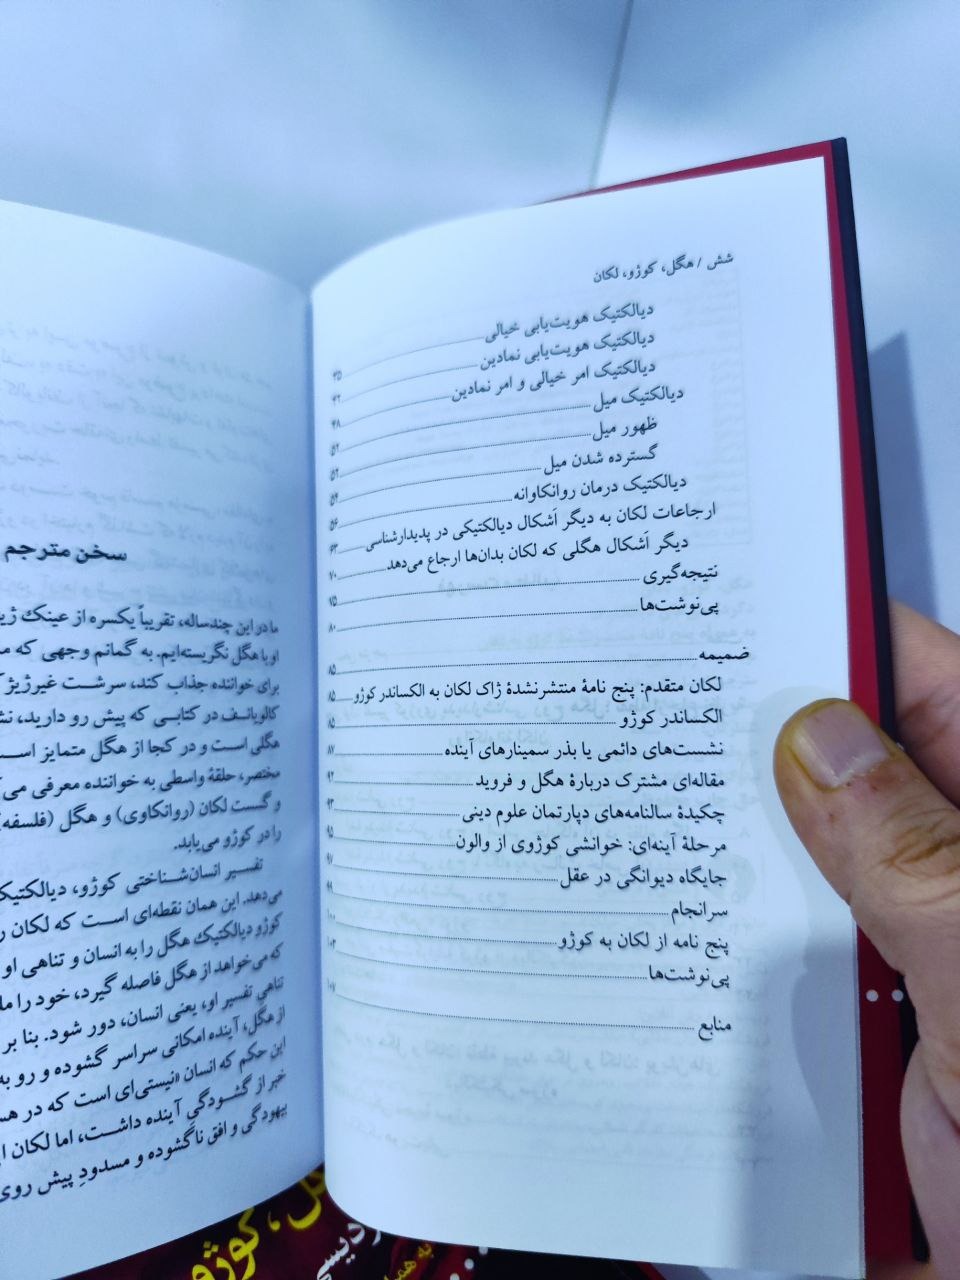 شش / هگل، کوژو، لکان
دیالکتیک هویت‌یابی خیالی ۳۵
دیالکتیک هویت‌یابی نمادین ۴۲
دیالکتیک امر خیالی و امر نمادین ۴۸
دیالکتیک میل ۵۲
ظهور میل ۵۲
گسترده شدن میل ۵۴
دیالکتیک درمان روانکاوانه ۵۶
ارجاعات لکان به دیگر اَشکال دیالکتیکی در پدیدارشناسی ۶۳
دیگر اَشکال هگلی که لکان بدان‌ها ارجاع می‌دهد ۷۰
نتیجه‌گیری ۷۵
پی‌نوشت‌ها ۸۰
ضمیمه ۸۵
لکان متقدم: پنج نامهٔ منتشرنشدهٔ ژاک لکان به الکساندر کوژو ۸۵
الکساندر کوژو ۸۵
نشست‌های دائمی یا بذر سمینارهای آینده ۸۷
مقاله‌ای مشترک دربارهٔ هگل و فروید ۹۲
چکیدهٔ سالنامه‌های دپارتمان علوم دینی ۹۳
مرحلهٔ آینه‌ای: خوانشی کوژوی از والون ۹۵
جایگاه دیوانگی در عقل ۹۷
سرانجام ۹۹
پنج نامه از لکان به کوژو ۱۰۰
پی‌نوشت‌ها ۱۰۳
منابع ۱۰۷
سخن مترجم
ما در این چندساله، تقریباً یکسره از عینک
او با هگل نگریسته‌ایم. به گمانم وجهی که
برای خواننده جذاب کند، سرشت غیرژیژ
کالویانف در کتابی که پیش رو دارید،
هگلی است و در کجا از هگل متمایز
مختصر، حلقهٔ واسطی به خواننده معرفی می‌
و گسست لکان (روانکاوی) و هگل (فلسفه)
را در کوژو می‌یابد.
تفسیر انسان‌شناختی کوژو، دیالکتیک
می‌دهد. این همان نقطه‌ای است که لکان
کوژو دیالکتیک هگل را به انسان و تناهی او
که می‌خواهد از هگل فاصله گیرد، خود را
تناهی تفسیر او، یعنی انسان، دور شود. بنا بر
از هگل، آینده امکانی سراسر گشوده و رو به
این حکم که انسان «نیستی‌ای است که در
خبر از گشودگیِ آینده داشت، اما لکان
بیهودگی و افق ناگشوده و مسدودِ پیش روی
کوژو